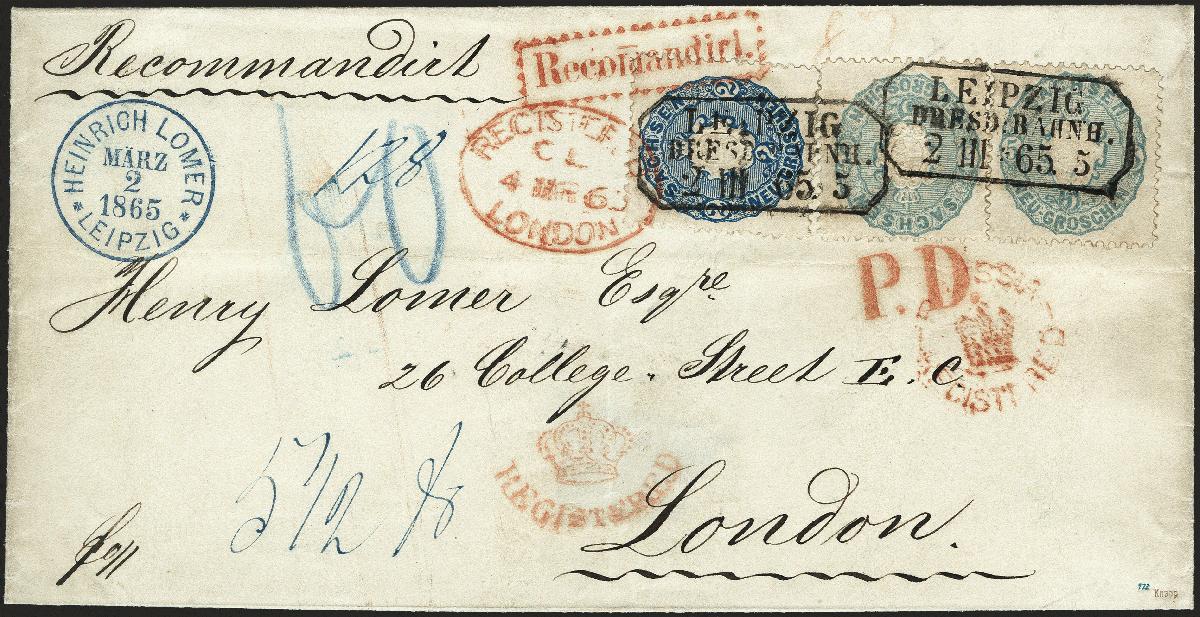 Recommandirt
Recommandirt.
HEINRICH LOMER
MÄRZ
2
1865
* LEIPZIG *
128
60
REGISTERED
4 MR 65
LONDON
SACHSEN
2
NEU-GROSCHEN
LEIPZIG
DRESD. BAHNH.
2 III 65. 5
SACHSEN
NEU-GROSCHEN
LEIPZIG
DRESD. BAHNH.
2 III 65. 5
NEU-GROSCHEN
P.D.
REGISTERED
Henry Lomer Esqre
26 College. Street E.C.
REGISTERED
5 1/2
London.
Knapp